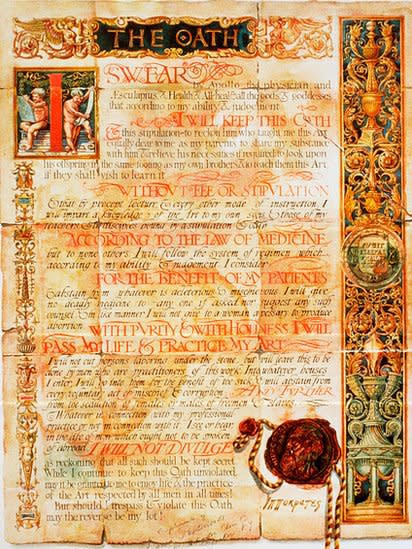 THE OATH
I SWEAR by
Apollo the physician and
Æsculapius & Health & All-heal & all the gods & goddesses
that according to my ability & judgement
I WILL KEEP THIS OATH
& this stipulation—to reckon him who taught me this Art
equally dear to me as my parents to share my substance
with him & relieve his necessities if required to look upon
his offspring in the same footing as my own brothers & to teach them this Art
if they shall wish to learn it
WITHOUT FEE OR STIPULATION
& that by precept lecture & every other mode of instruction I
will impart a knowledge of the Art to my own sons & those of my
teachers & to disciples bound by a stipulation & oath
ACCORDING TO THE LAW OF MEDICINE
but to none others I will follow the system of regimen which
according to my ability & judgement I consider
FOR THE BENEFIT OF MY PATIENTS
& abstain from whatever is deleterious & mischievous I will give
no deadly medicine to any one if asked nor suggest any such
counsel & in like manner I will not give to a woman a pessary to produce
abortion
WITH PVRITY & WITH HOLINESS I WILL
PASS MY LIFE & PRACTICE MY ART
I will not cut persons laboring under the stone, but will leave this to be
done by men who are practitioners of this work. Into whatever houses
I enter I will go into them for the benefit of the sick & will abstain from
every voluntary act of mischief & corruption & FURTHER
from the seduction of females or males of freemen & slaves
Whatever in connection with my professional
practice or not in connection with it I see or hear
in the life of men which ought not to be spoken
of abroad I WILL NOT DIVULGE
as reckoning that all such should be kept secret
While I continue to keep this Oath unviolated
may it be granted to me to enjoy life & the practice
of the Art respected by all men in all times!
But should I trespass & violate this Oath
may the reverse be my lot!